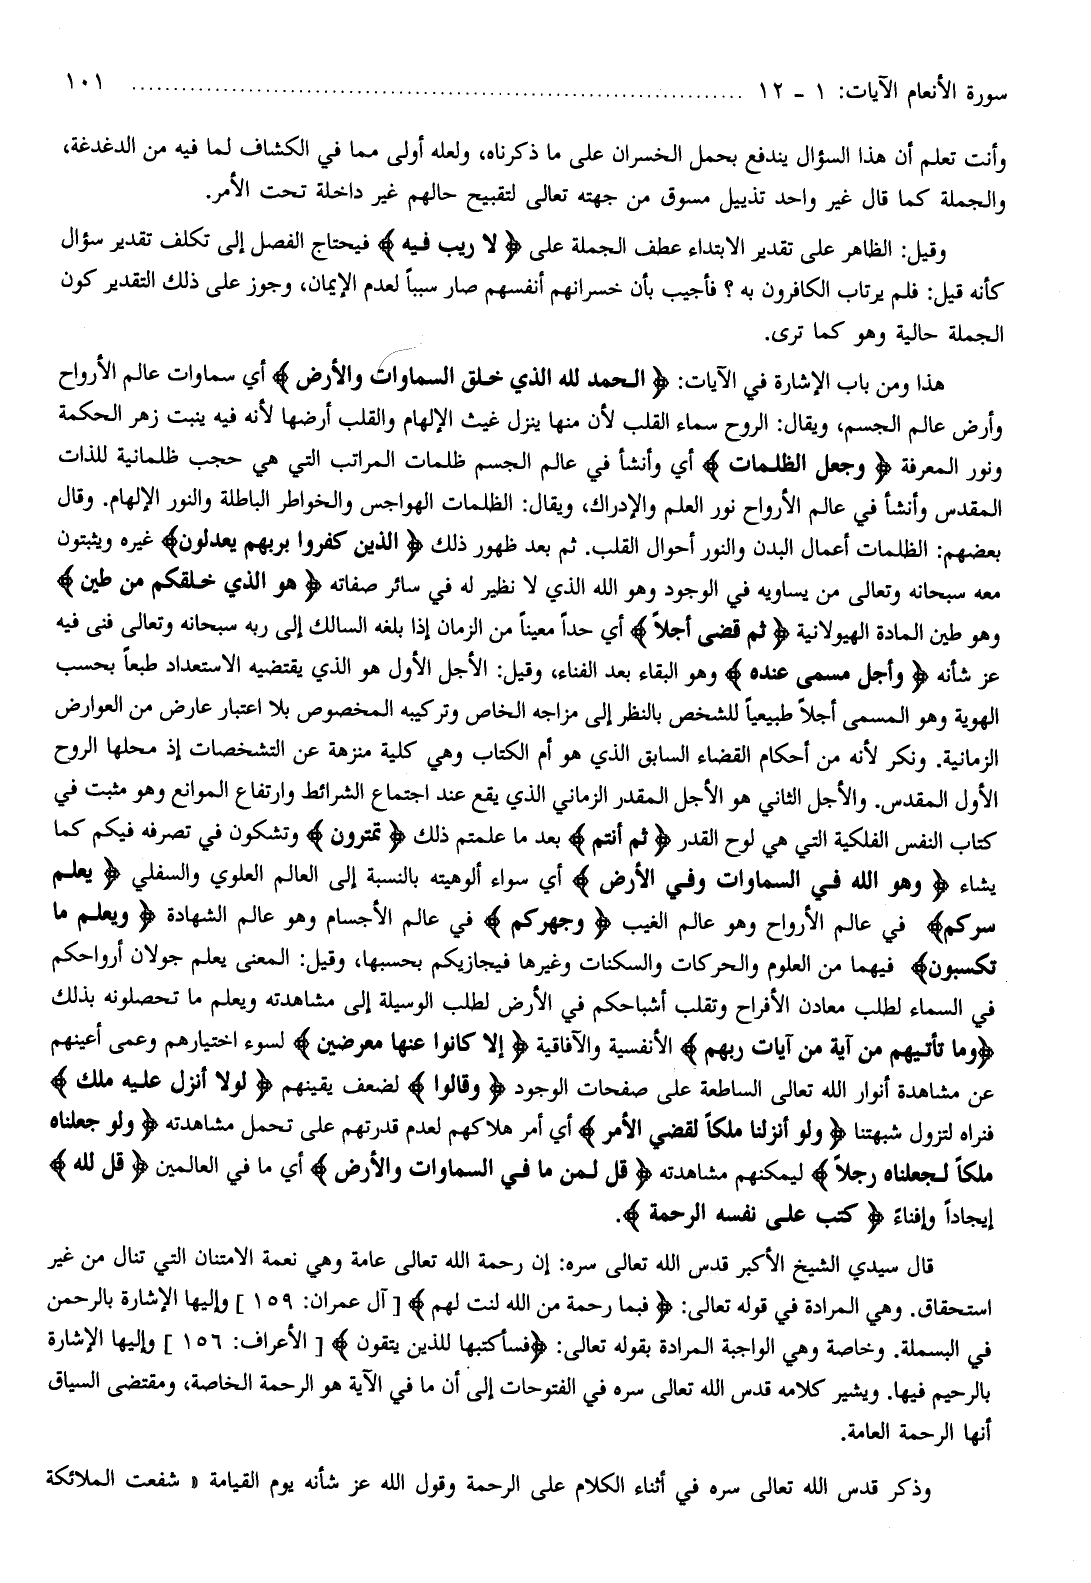 سورة الأنعام الآيات: ١ - ١٢ ........................................................................ ١٠١
وأنت تعلم أن هذا السؤال يندفع بحمل الخسران على ما ذكرناه، ولعله أولى مما في الكشاف لما فيه من الدغدغة،
والجملة كما قال غير واحد تذييل مسوق من جهته تعالى لتقبيح حالهم غير داخلة تحت الأمر.
وقيل: الظاهر على تقدير الابتداء عطف الجملة على ﴿ لا ريب فيه ﴾ فيحتاج الفصل إلى تكلف تقدير سؤال
كأنه قيل: فلم يرتاب الكافرون به ؟ فأجيب بأن خسرانهم أنفسهم صار سبباً لعدم الإيمان، وجوز على ذلك التقدير كون
الجملة حالية وهو كما ترى.
هذا ومن باب الإشارة في الآيات: ﴿ الحمد لله الذي خلق السماوات والأرض ﴾ أي سماوات عالم الأرواح
وأرض عالم الجسم، ويقال: الروح سماء القلب لأن منها ينزل غيث الإلهام والقلب أرضها لأنه فيه ينبت زهر الحكمة
ونور المعرفة ﴿ وجعل الظلمات ﴾ أي وأنشأ في عالم الجسم ظلمات المراتب التي هي حجب ظلمانية للذات
المقدس وأنشأ في عالم الأرواح نور العلم والإدراك، ويقال: الظلمات الهواجس والخواطر الباطلة والنور الإلهام. وقال
بعضهم: الظلمات أعمال البدن والنور أحوال القلب. ثم بعد ظهور ذلك ﴿ الذين كفروا بربهم يعدلون﴾ غيره ويثبتون
معه سبحانه وتعالى من يساويه في الوجود وهو الله الذي لا نظير له في سائر صفاته ﴿ هو الذي خلقكم من طين ﴾
وهو طين المادة الهيولانية ﴿ ثم قضى أجلاً ﴾ أي حداً معيناً من الزمان إذا بلغه السالك إلى ربه سبحانه وتعالى فنى فيه
عز شأنه ﴿ وأجل مسمى عنده ﴾ وهو البقاء بعد الفناء، وقيل: الأجل الأول هو الذي يقتضيه الاستعداد طبعاً بحسب
الهوية وهو المسمى أجلاً طبيعياً للشخص بالنظر إلى مزاجه الخاص وتركيبه المخصوص بلا اعتبار عارض من العوارض
الزمانية. ونكر لأنه من أحكام القضاء السابق الذي هو أم الكتاب وهي كلية منزهة عن التشخصات إذ محلها الروح
الأول المقدس. والأجل الثاني هو الأجل المقدر الزماني الذي يقع عند اجتماع الشرائط وارتفاع الموانع وهو مثبت في
كتاب النفس الفلكية التي هي لوح القدر ﴿ ثم أنتم ﴾ بعد ما علمتم ذلك ﴿ تمترون ﴾ وتشكون في تصرفه فيكم كما
يشاء ﴿ وهو الله في السماوات وفي الأرض ﴾ أي سواء ألوهيته بالنسبة إلى العالم العلوي والسفلي ﴿ يعلم
سركم﴾ في عالم الأرواح وهو عالم الغيب ﴿ وجهركم ﴾ في عالم الأجسام وهو عالم الشهادة ﴿ ويعلم ما
تكسبون﴾ فيهما من العلوم والحركات والسكنات وغيرها فيجازيكم بحسبها، وقيل: المعنى يعلم جولان أرواحكم
في السماء لطلب معادن الأفراح وتقلب أشباحكم في الأرض لطلب الوسيلة إلى مشاهدته ويعلم ما تحصلونه بذلك
﴿وما تأتيهم من آية من آيات ربهم ﴾ الأنفسية والآفاقية ﴿ إلا كانوا عنها معرضين ﴾ لسوء اختيارهم وعمى أعينهم
عن مشاهدة أنوار الله تعالى الساطعة على صفحات الوجود ﴿ وقالوا ﴾ لضعف يقينهم ﴿ لولا أنزل عليه ملك ﴾
فنراه لتزول شبهتنا ﴿ ولو أنزلنا ملكاً لقضي الأمر ﴾ أي أمر هلاكهم لعدم قدرتهم على تحمل مشاهدته ﴿ ولو جعلناه
ملكاً لجعلناه رجلاً ﴾ ليمكنهم مشاهدته ﴿ قل لمن ما في السماوات والأرض ﴾ أي ما في العالمين ﴿ قل لله ﴾
إيجاداً وإفناءً ﴿ كتب على نفسه الرحمة ﴾.
قال سيدي الشيخ الأكبر قدس الله تعالى سره: إن رحمة الله تعالى عامة وهي نعمة الامتنان التي تنال من غير
استحقاق. وهي المرادة في قوله تعالى: ﴿ فبما رحمة من الله لنت لهم ﴾ [ آل عمران: ١٥٩ ] وإليها الإشارة بالرحمن
في البسملة. وخاصة وهي الواجبة المرادة بقوله تعالى: ﴿فسأكتبها للذين يتقون ﴾ [ الأعراف: ١٥٦ ] وإليها الإشارة
بالرحيم فيها. ويشير كلامه قدس الله تعالى سره في الفتوحات إلى أن ما في الآية هو الرحمة الخاصة، ومقتضى السياق
أنها الرحمة العامة.
وذكر قدس الله تعالى سره في أثناء الكلام على الرحمة وقول الله عز شأنه يوم القيامة « شفعت الملائكة